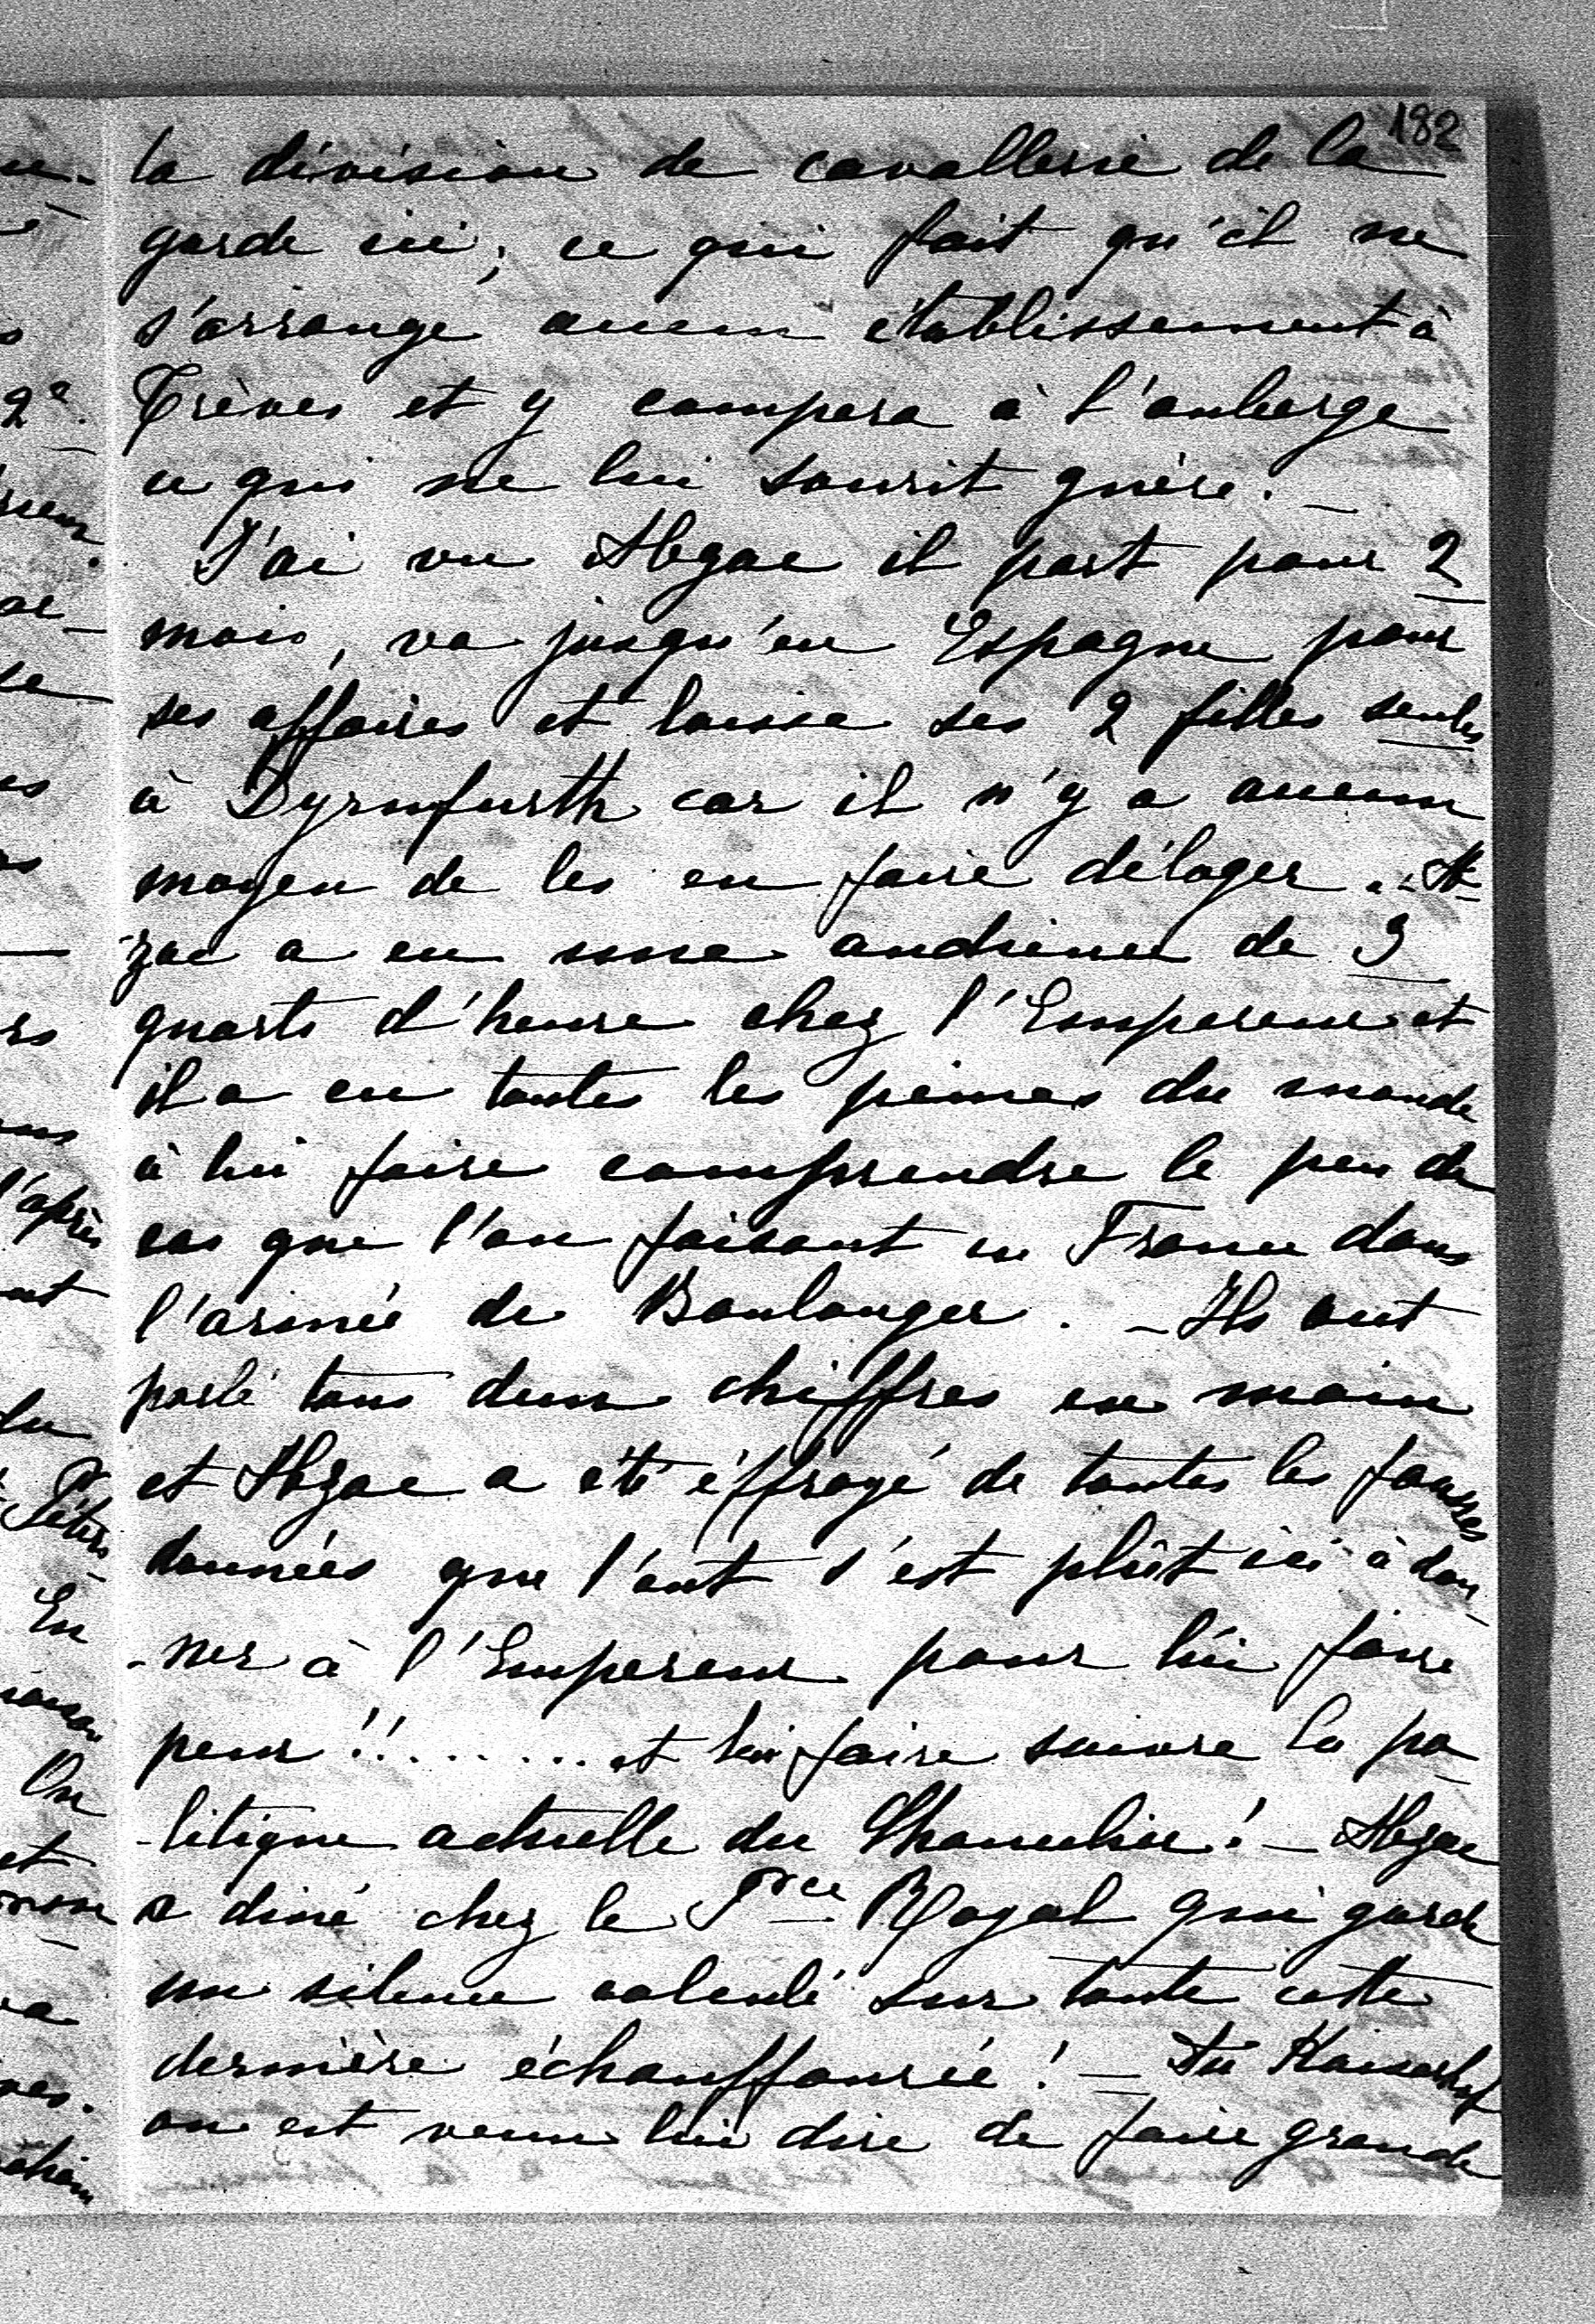 182
la division de cavallerie de la
garde ici, ce qui fait qu'il ne
s'arrange aucun établissement à
Trèves et y campera à l'auberge
ce qui ne lui sourit guère. _
J'ai vu Abzac il part pour 2
mois, va jusqu'en Espagne pour
ses affaires et laisse ses 2 filles seules
à Dyrnfurth car il n'y a aucun
moyen de les en faire déloger. _ Ab-
-zac a eu une audience de 3
quarts d'heure chez l'Empereur et
il a eu toutes les peines du monde
à lui faire comprendre le peu de
cas que l'on faisait en France dans
l'armée de Boulanger. _ Ils ont
parlé tous deux chiffres en main
et Abzac a été éffrayé de toutes les fausses
données que l'ont s'est plût ici à don-
-ner à l'Empereur pour lui faire
peur!!........ et lui faire suivre la po-
-litique actuelle du Chancelier! _ Abzac
a diné chez le Pce Royal qui garde
un silence calculé sur toute cette
dernière échauffourée! _ Au Kaiserhof
on est venu lui dire de faire grande